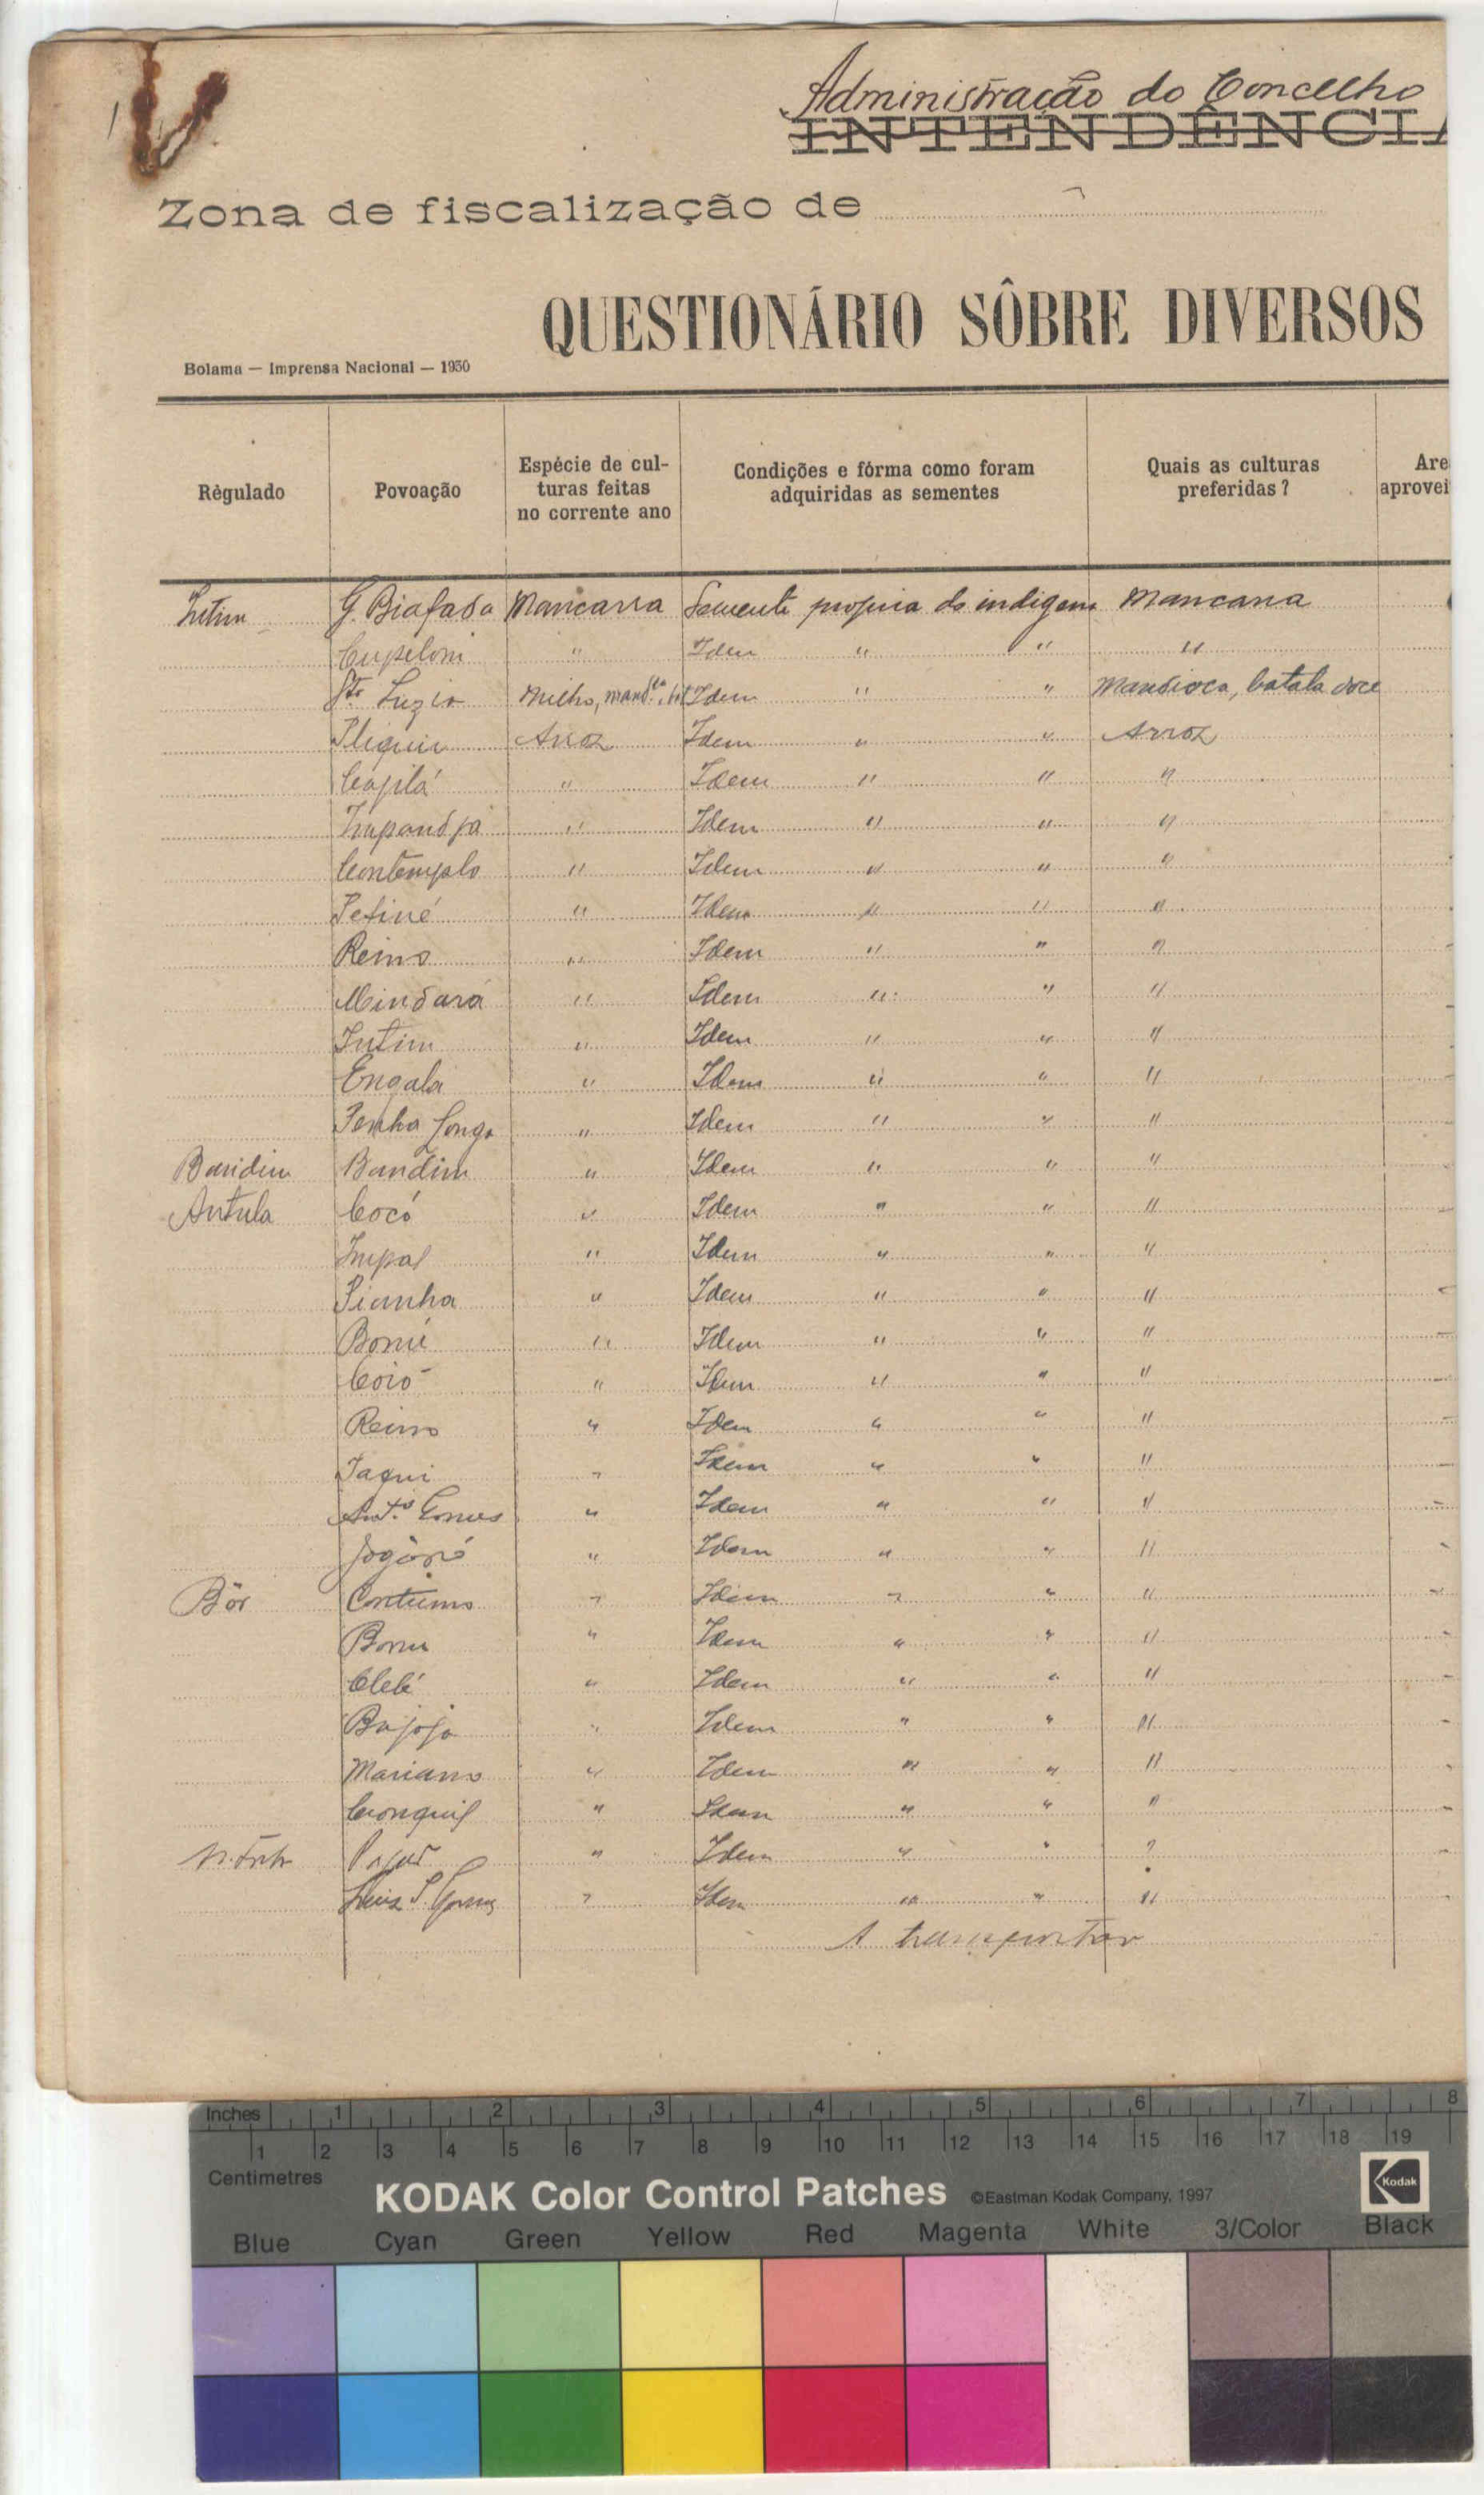 Administração do Concelho
INTENDÊNCIA
Zona de fiscalização de
QUESTIONÁRIO SÔBRE DIVERSOS
Bolama — Imprensa Nacional — 1930
Règulado Povoação Espécie de cul-turas feitas no corrente ano Condições e fórma como foram adquiridas as sementes Quais as culturas preferidas? Are aprovei
Intim G. Biafada Mancarra Semente propria do indigena Mancarra
Cupeloni " Idem " " "
Sta Luzia Milho, mand.ca, bat Idem " " Mandioca, batata doce
Pliquir Arroz Idem " " Arroz
Capilá " Idem " " "
" Idem " " "
Contemplo " Idem " " "
Petiné " Idem " " "
Reino " Idem " " "
Mindará " Idem " " "
Intim " Idem " " "
Engala " Idem " " "
Penha Longa " Idem " " "
Bandim Bandim " Idem " " "
Antula Cocó " Idem " " "
Impal " Idem " " "
Pianha " Idem " " "
Bomé " Idem " " "
Coió " Idem " " "
Reino " Idem " " "
Jaqui " Idem " " "
Ant.º Gomes " Idem " " "
" Idem " " "
Bôr Contumo " Idem " " "
" Idem " " "
Clelé " Idem " " "
Bajoja " Idem " " "
Mariano " Idem " " "
" Idem " " "
" Idem " " ?
Luiz Gomes " Idem " " "
A transportar
Inches 1 2 3 4 5 6 7 8
1 2 3 4 5 6 7 8 9 10 11 12 13 14 15 16 17 18 19
Centimetres
KODAK Color Control Patches ©Eastman Kodak Company, 1997 Kodak
Blue Cyan Green Yellow Red Magenta White 3/Color Black